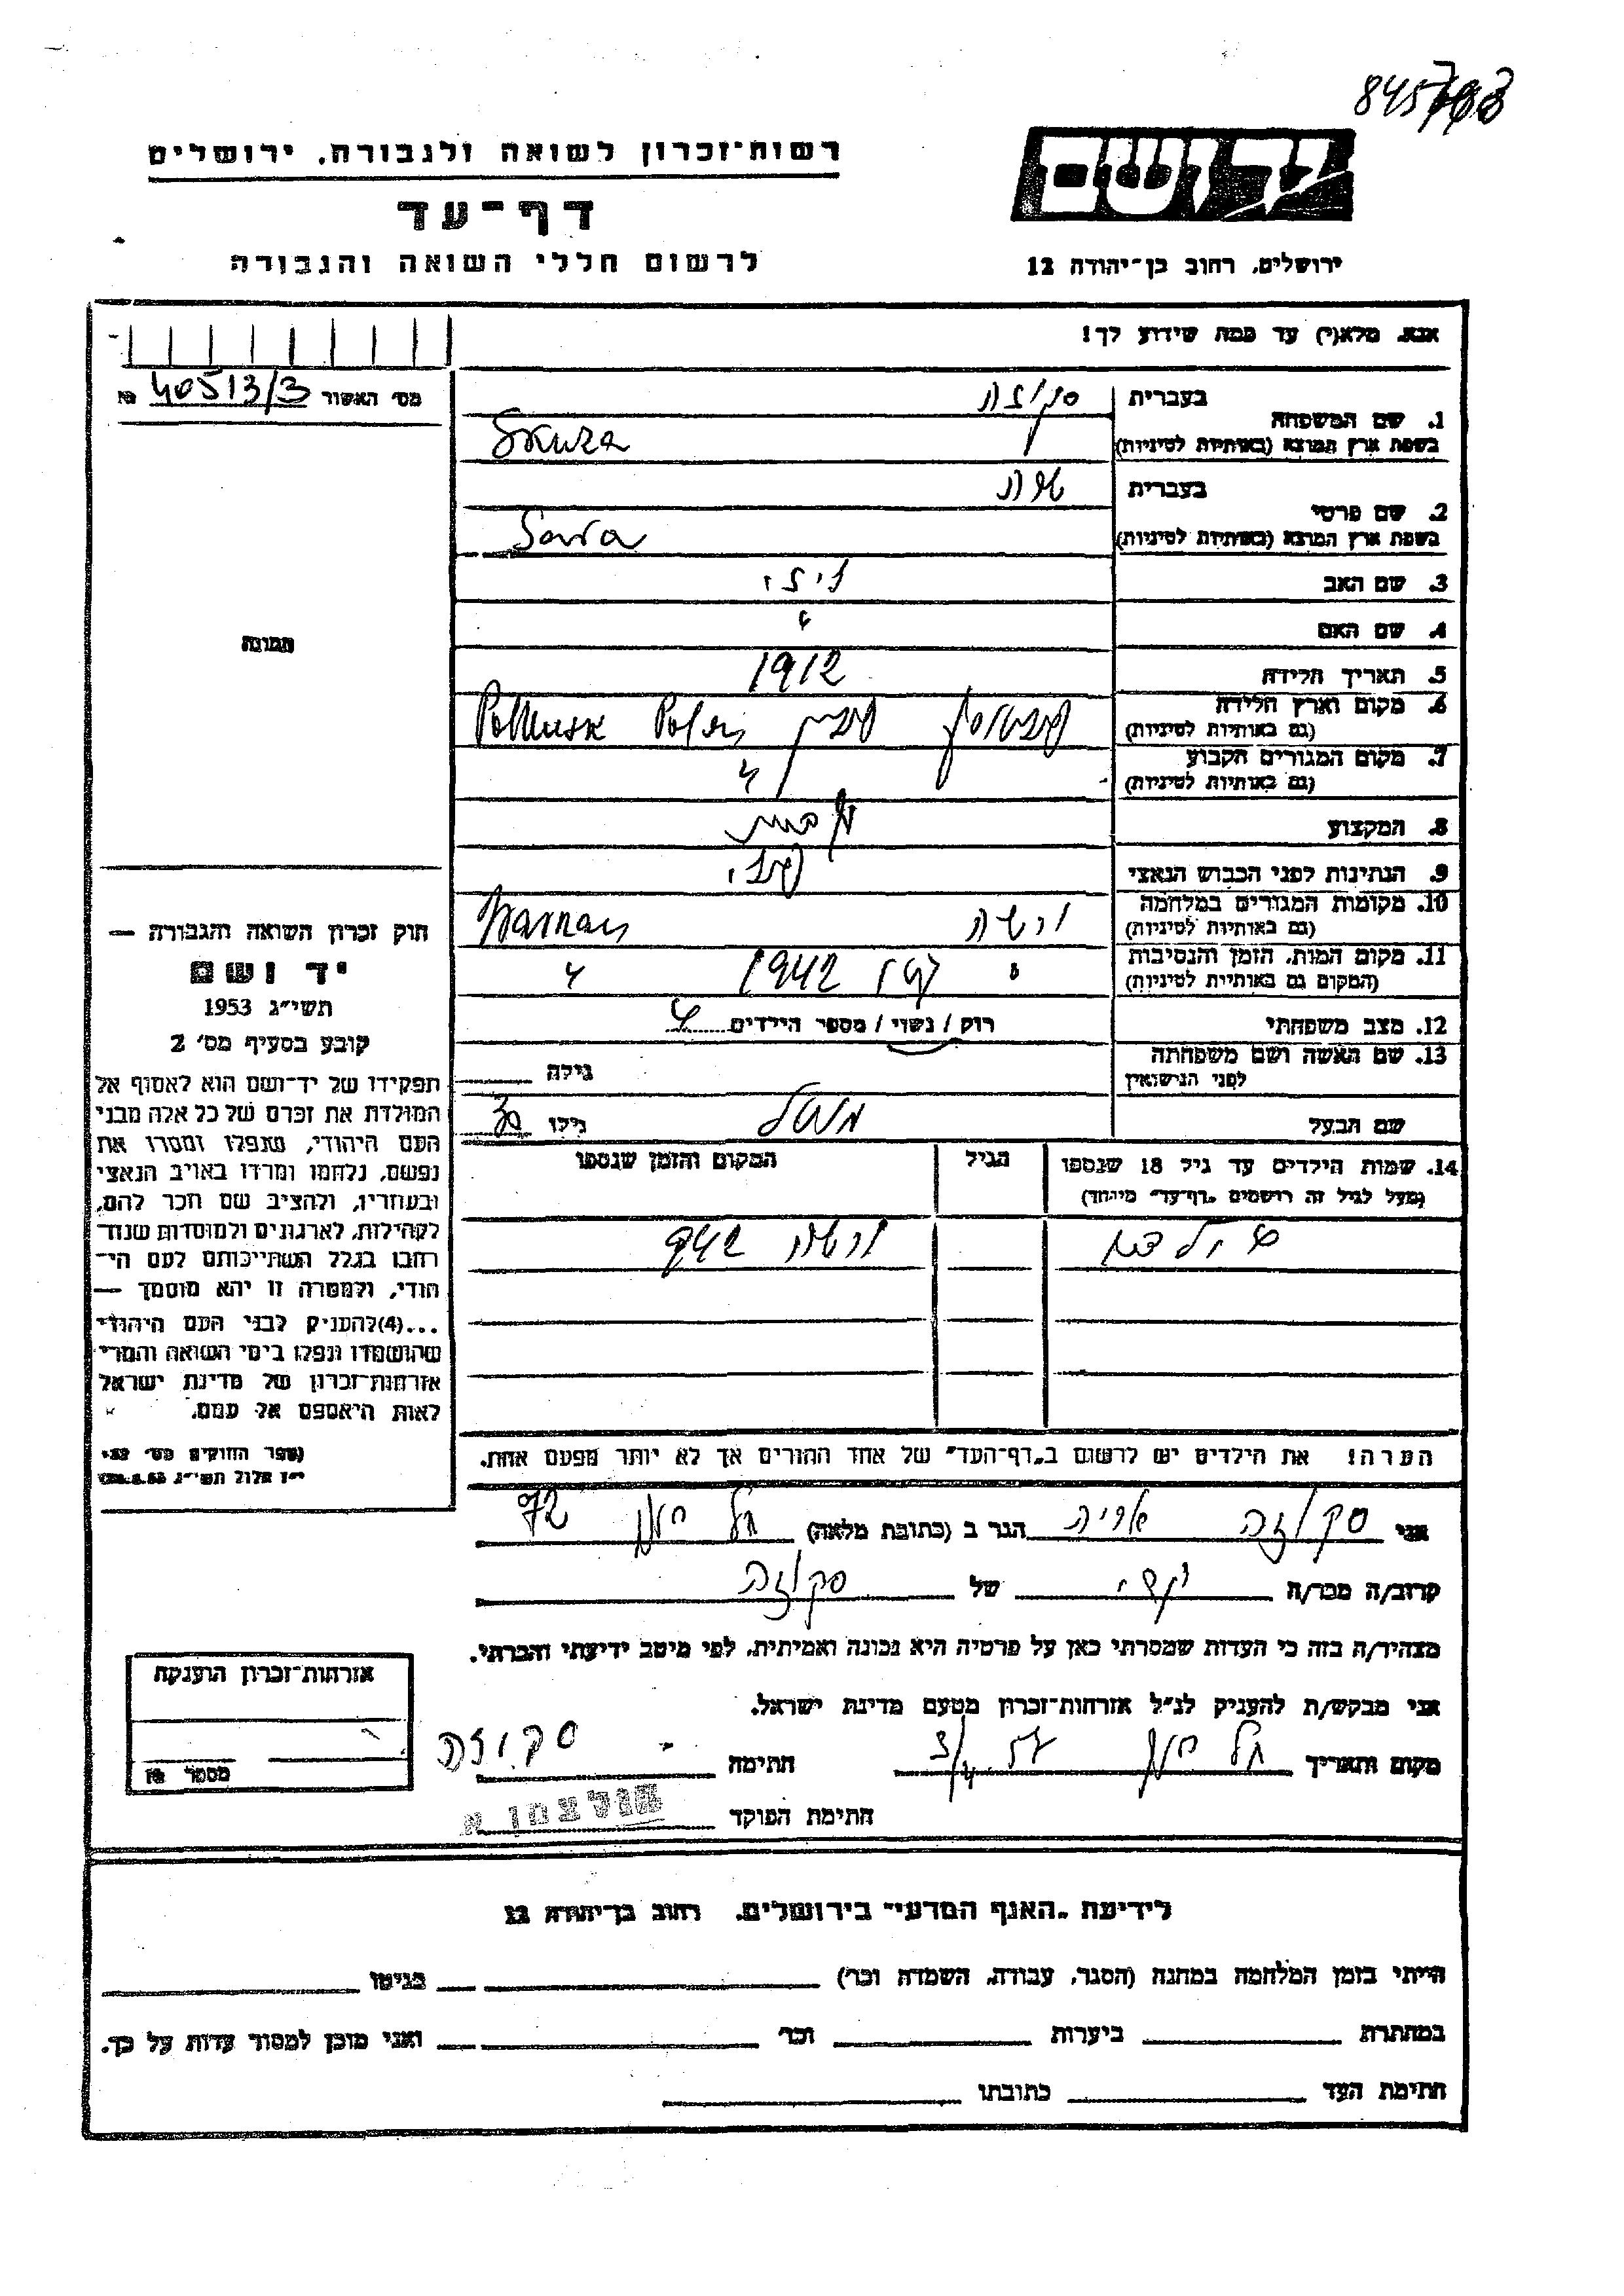 845
רשות־זכרון לשואה ולגבורה, ירושלים
יד ושם
דף־עד
לרשום חללי השואה והגבורה
ירושלים, רחוב בן־יהודה 12
אנא, מלא(י) עד כמה שידוע לך!
מס׳ האשור 40513/3 №
1. שם המשפחה
בעברית סקוזה
בשפת ארץ המוצא (באותיות לטיניות) Skuza
2. שם פרטי
בעברית שרה
בשפת ארץ המוצא (באותיות לטיניות) Sara
3. שם האב
4. שם האם
5. תאריך הלידה 1912
6. מקום וארץ הלידה
(גם באותיות לטיניות) פולטוסק פולין Poltusk Polen
7. מקום המגורים הקבוע
(גם באותיות לטיניות)
8. המקצוע
9. הנתינות לפני הכבוש הנאצי פולני
10. מקומות המגורים במלחמה
(גם באותיות לטיניות) ורשה
11. מקום המות, הזמן והנסיבות
(המקום גם באותיות לטיניות) גטו 1942
12. מצב משפחתי רוק / נשוי / מספר הילדים
13. שם האשה ושם משפחתה
לפני הנישואין גילה
שם הבעל גילו
14. שמות הילדים עד גיל 18 שנספו
(מעל לגיל זה רושמים „דף־עד״ מיוחד)
הגיל
המקום והזמן שנספו
ורשה 942
הערה! את הילדים יש לרשום ב„דף־העד״ של אחד ההורים אך לא יותר מפעם אחת.
תמונה
חוק זכרון השואה והגבורה —
יד ושם
תשי״ג 1953
קובע בסעיף מס׳ 2
תפקידו של יד־ושם הוא לאסוף אל
המולדת את זכרם של כל אלה מבני
העם היהודי, שנפלו ומסרו את
נפשם, נלחמו ומרדו באויב הנאצי
ובעוזריו, ולהציב שם וזכר להם,
לקהילות, לארגונים ולמוסדות שנח־
רבו בגלל השתייכותם לעם הי־
הודי, ולמטרה זו יהא מוסמך —
...(4)להעניק לבני העם היהודי
שהושמדו ונפלו בימי השואה והמרי
אזרחות־זכרון של מדינת ישראל
לאות היאספם אל עמם.
(ספר החוקים מס׳ 132
י״ז אלול תשי״ג
אני סקוזה אריה הגר ב (כתובת מלאה) תל חנן 72
קרוב/ה מכר/ה של סקוזה
מצהיר/ה בזה כי העדות שמסרתי כאן על פרטיה היא נכונה ואמיתית, לפי מיטב ידיעתי והכרתי.
אני מבקש/ת להעניק לנ״ל אזרחות־זכרון מטעם מדינת ישראל.
מקום ותאריך תל חנן חתימה סקוזה
חתימת הפוקד הולצמן א
אזרחות־זכרון הוענקה
מספר №
לידיעת „האגף המדעי״ בירושלים, רחוב בן־יהודה 12
הייתי בזמן המלחמה במחנה (הסגר, עבודה, השמדה וכו׳) בגיטו
במחתרת ביערות וכו׳ ואני מוכן למסור עדות על כך.
חתימת העד כתובתו